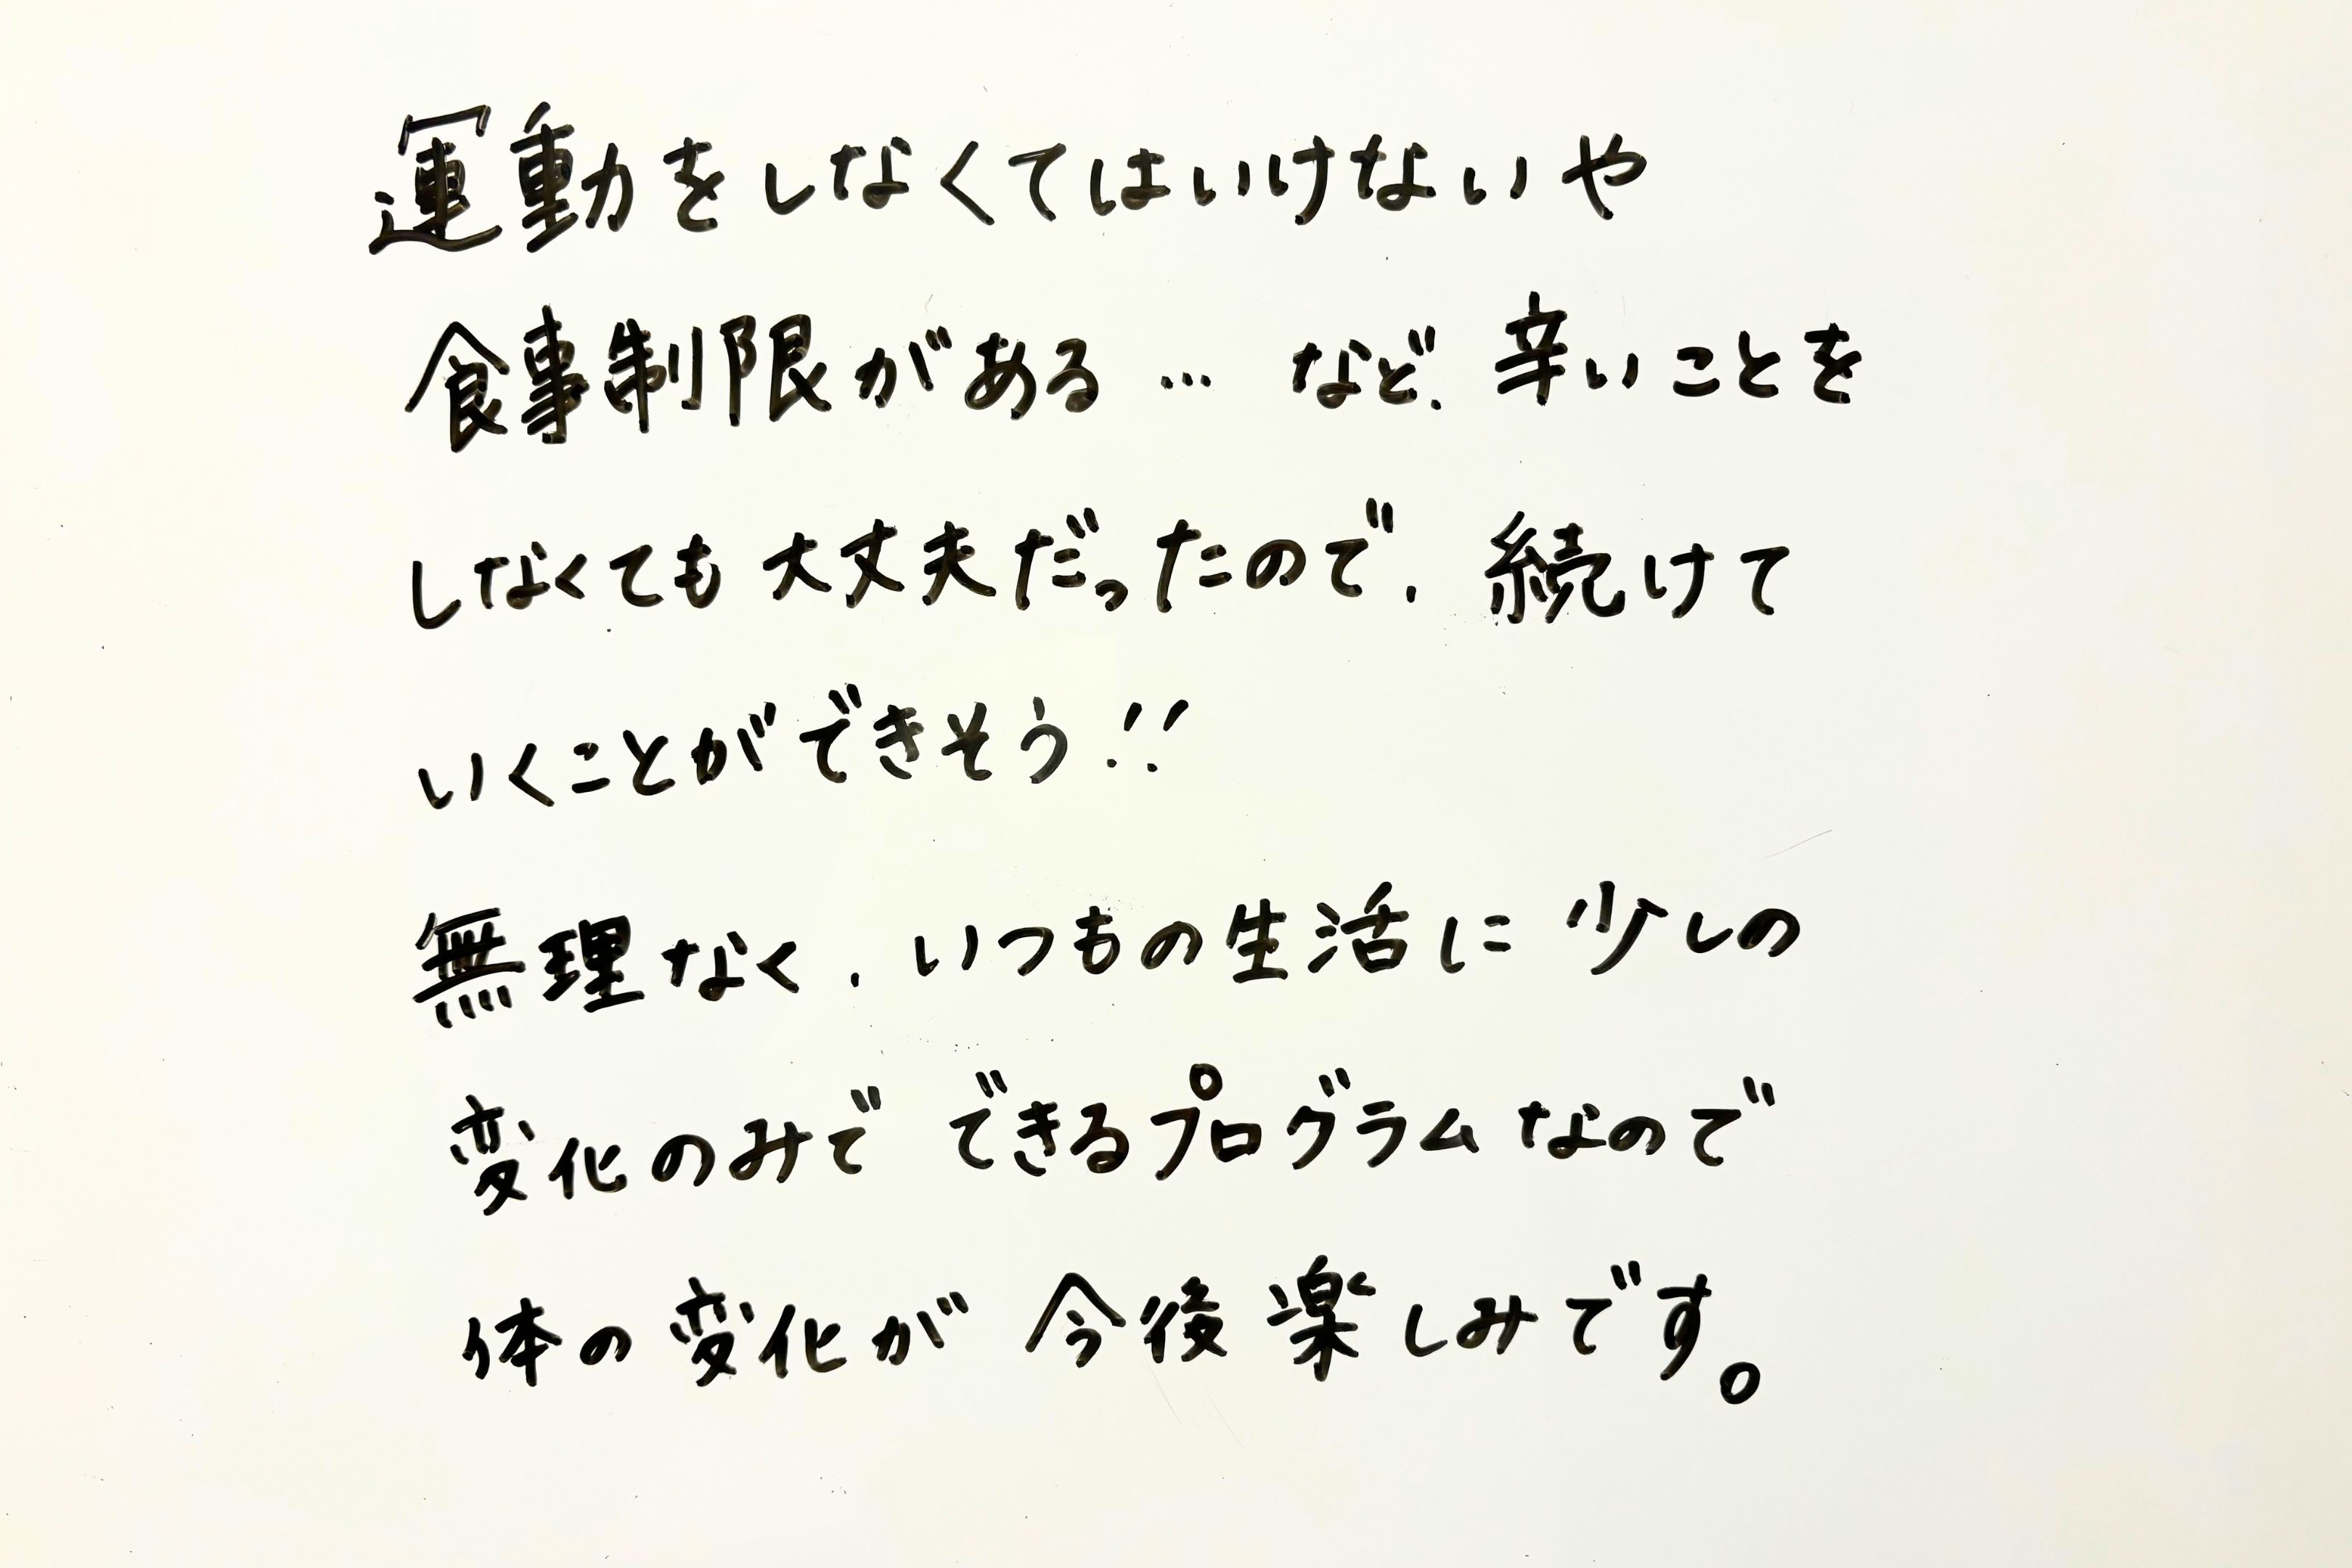 運動をしなくてはいけないや
食事制限がある… など、辛いことを
しなくても大丈夫だったので、続けて
いくことができそう!!
無理なく、いつもの生活に少しの
変化のみで できるプログラムなので
体の変化が 今後楽しみです。